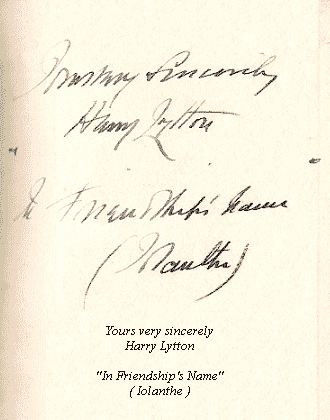 Yours very Sincerely
Harry Lytton
In Friendship's Name
(Iolanthe)
Yours very sincerely
Harry Lytton
"In Friendship's Name"
( Iolanthe )